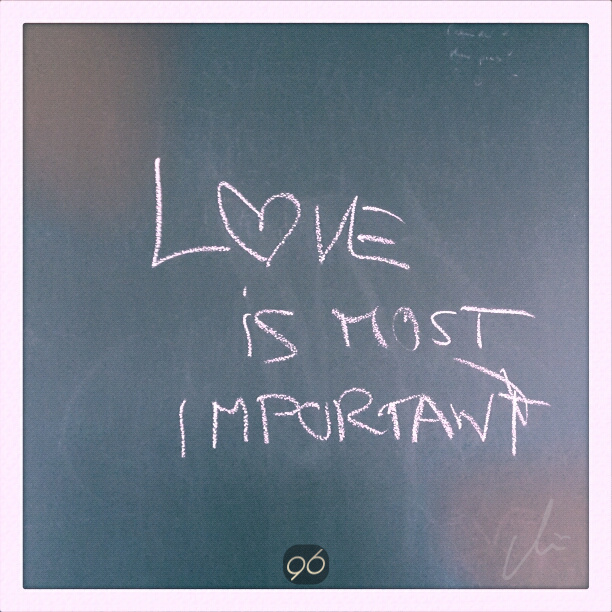 L♥VE
is MOST
IMPORTANT
96